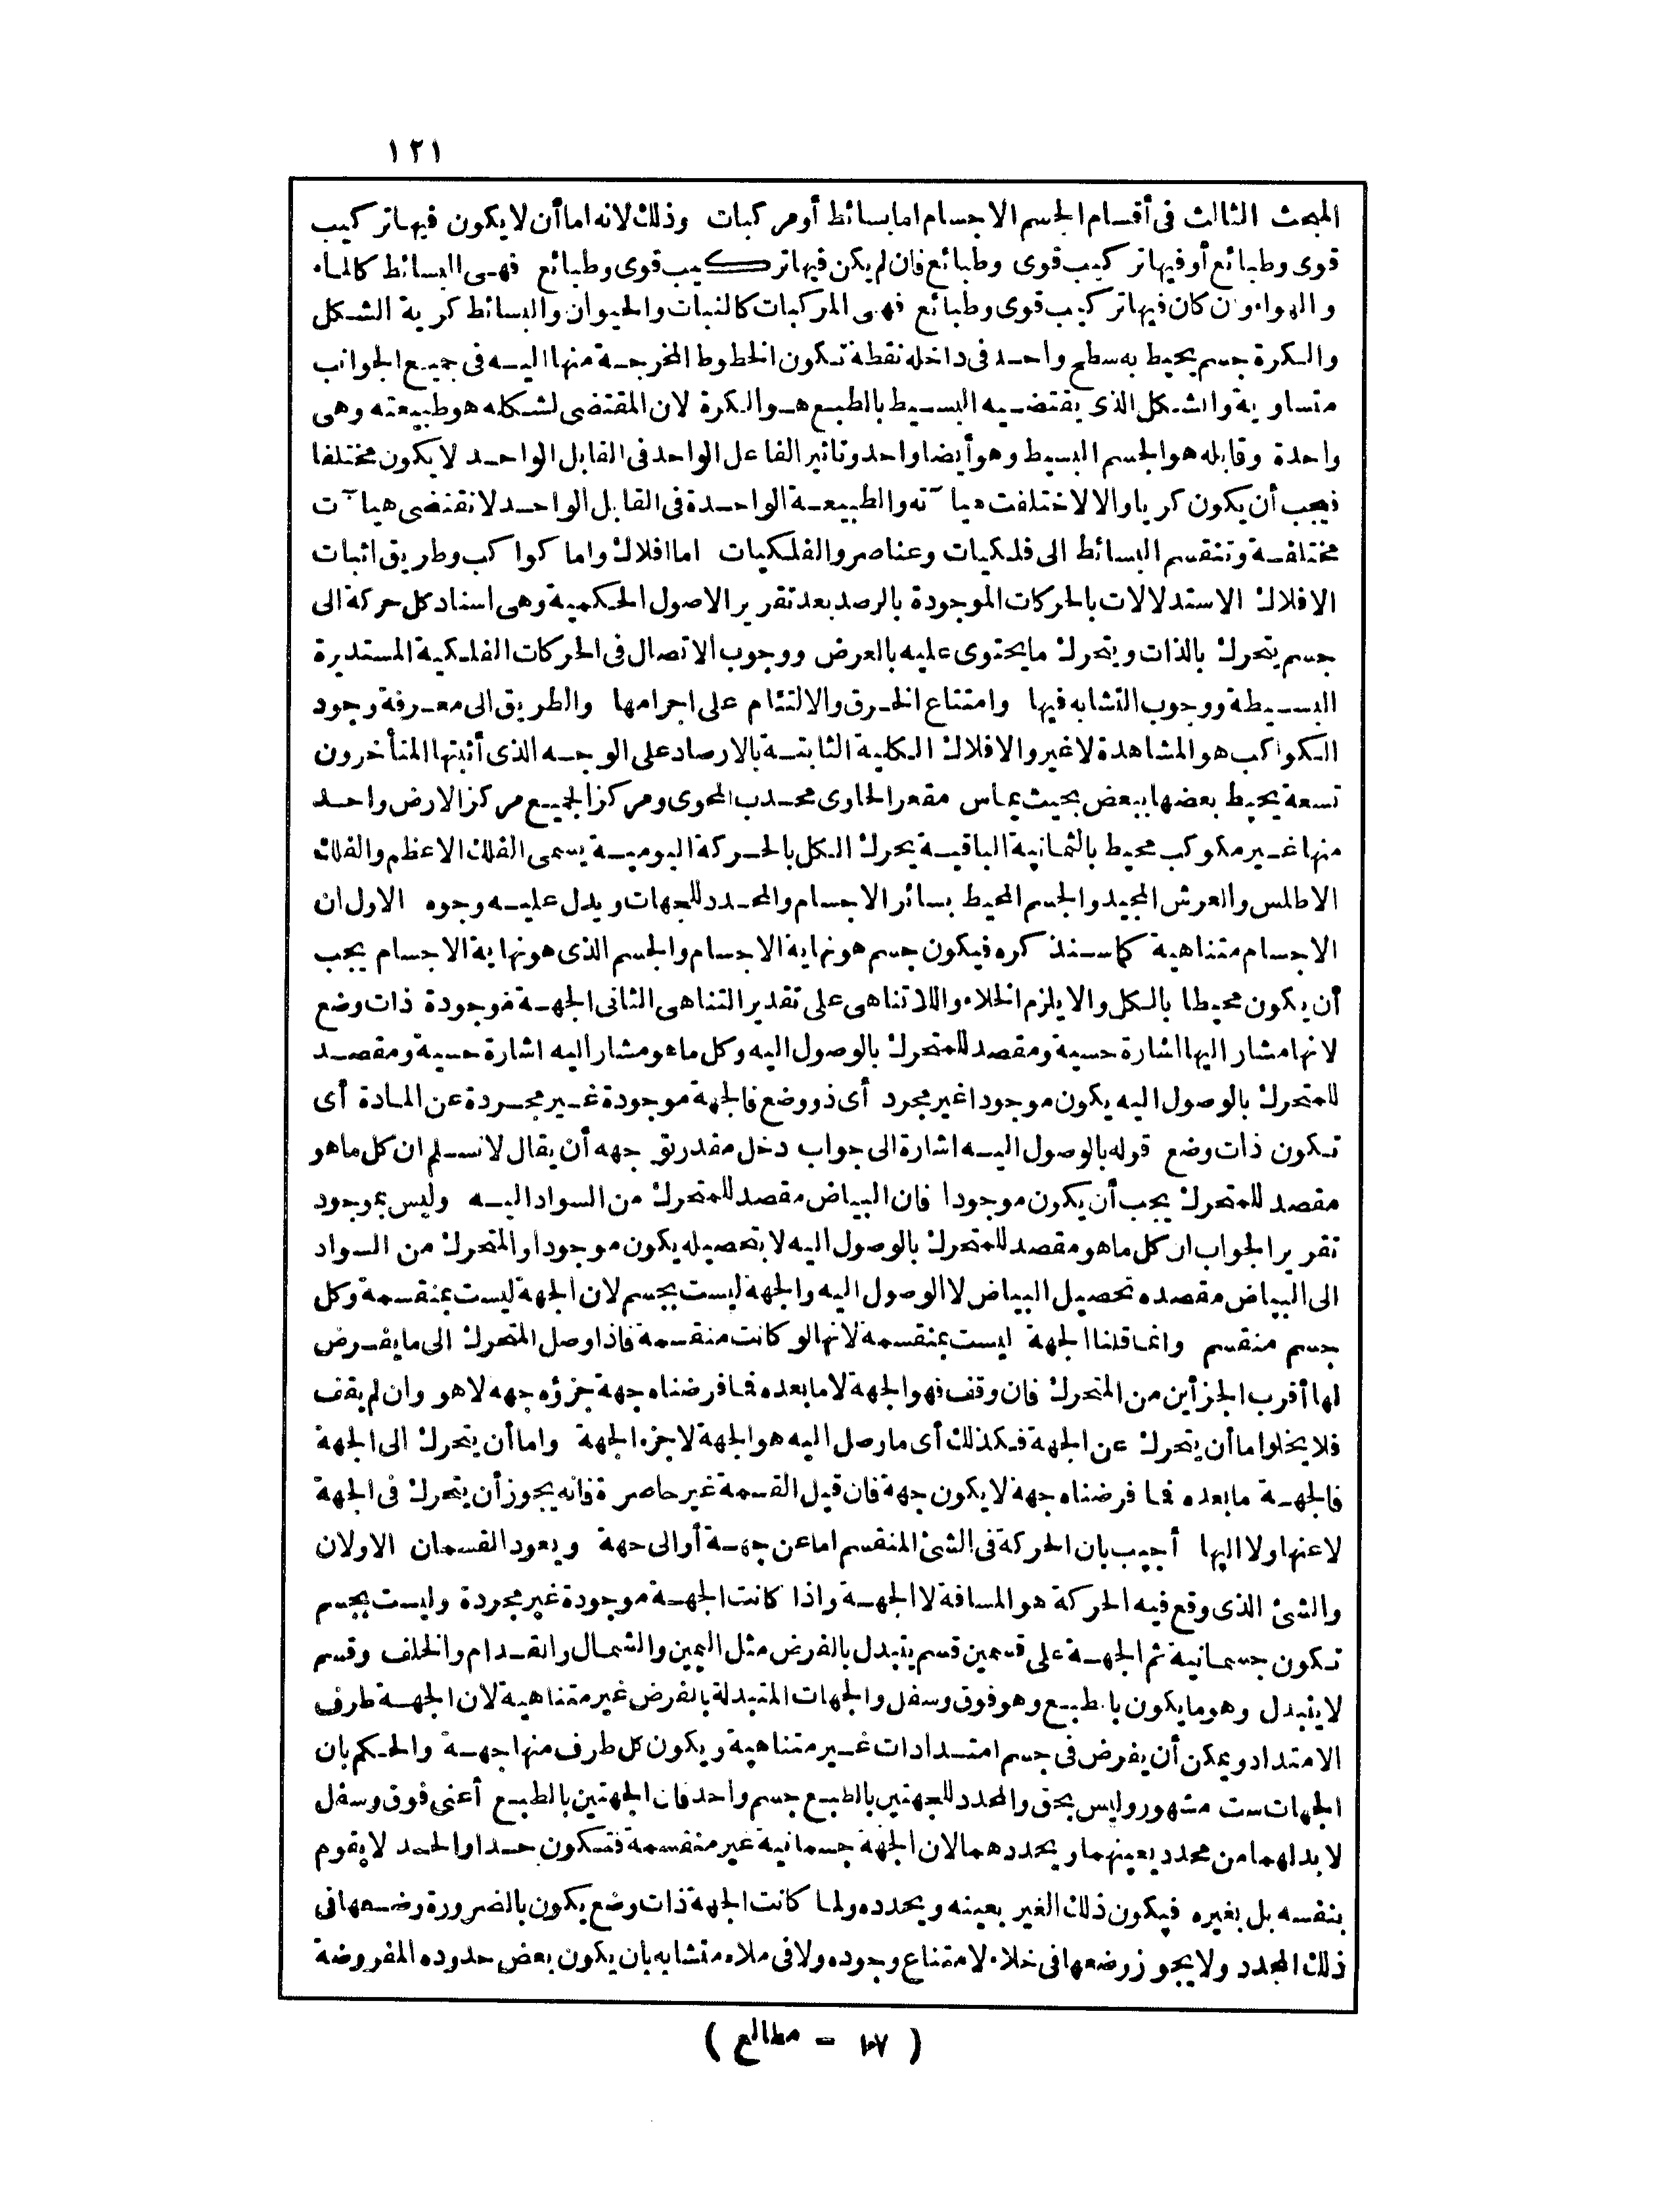 ١٢١
المبحث الثالث فى أقسام الجسم الاجسام اما بسائط أو مركبات وذلك لانه اما أن لا يكون فيها تركيب
قوى وطبائع أو فيها تركيب قوى وطبائع فان لم يكن فيها تركيب قوى وطبائع فهى البسائط كالماء
والهواء وان كان فيها تركيب قوى وطبائع فهى المركبات كالنبات والحيوان والبسائط كرية الشكل
والكرة جسم يحيط به سطح واحد فى داخله نقطة تكون الخطوط المخرجة منها اليه فى جميع الجوانب
متساوية والشكل الذى يقتضيه البسيط بالطبع هو الكرة لان المقتضى لشكله هو طبيعته وهى
واحدة وقابله هو الجسم البسيط وهو أيضا واحد وتاثير الفاعل الواحد فى القابل الواحد لا يكون مختلفا
فيجب أن يكون كريا والا لاختلفت هيا ٓته والطبيعة الواحدة فى القابل الواحد لا تقتضى هيا ٓت
مختلفة وتنقسم البسائط الى فلكيات وعناصر والفلكيات اما افلاك واما كواكب وطريق اثبات
الافلاك الاستدلالات بالحركات الموجودة بالرصد بعد تقرير الاصول الحكمية وهى اسناد كل حركة الى
جسم يتحرك بالذات ويتحرك ما يحتوى عليه بالعرض ووجوب الاتصال فى الحركات الفلكية المستديرة
البسيطة ووجوب التشابه فيها وامتناع الخرق والالتئام على اجرامها والطريق الى معرفة وجود
الكواكب هو المشاهدة لا غير والافلاك الكلية الثابتة بالارصاد على الوجه الذى أثبتها المتأخرون
تسعة يحيط بعضها ببعض بحيث يماس مقعر الحاوى محدب المحوى ومركز الجميع مركز الارض واحد
منها غير مكوكب محيط بالثمانية الباقية يحرك الكل بالحركة اليومية يسمى الفلك الاعظم والفلك
الاطلس والعرش المجيد والجسم المحيط بسائر الاجسام والمحدد للجهات ويدل عليه وجوه الاول ان
الاجسام متناهية كما سنذكره فيكون جسم هو نهاية الاجسام والجسم الذى هو نهاية الاجسام يجب
أن يكون محيطا بالكل والا يلزم الخلاء واللا تناهى على تقدير التناهى الثانى الجهة موجودة ذات وضع
لانها مشار اليها اشارة حسية ومقصد للمتحرك بالوصول اليه وكل ما هو مشار اليه اشارة حسية ومقصد
للمتحرك بالوصول اليه يكون موجودا غير مجرد أى ذو وضع فالجهة موجودة غير مجردة عن المادة أى
تكون ذات وضع قوله بالوصول اليه اشارة الى جواب دخل مقدر توجهه أن يقال لا نسلم ان كل ما هو
مقصد للمتحرك يجب أن يكون موجودا فان البياض مقصد للمتحرك من السواد اليه وليس بموجود
تقرير الجواب ان كل ما هو مقصد للمتحرك بالوصول اليه لا بتحصيله يكون موجودا والمتحرك من السواد
الى البياض مقصده تحصيل البياض لا الوصول اليه والجهة ليست بجسم لان الجهة ليست بمنقسمة وكل
جسم منقسم وانما قلنا الجهة ليست بمنقسمة لانها لو كانت منقسمة فاذا وصل المتحرك الى ما يفرض
لها أقرب الجزأين من المتحرك فان وقف فهو الجهة لا ما بعده فما فرضناه جهة جزؤه جهه لا هو وان لم يقف
فلا يخلو اما أن يتحرك عن الجهة فكذلك أى ما وصل اليه هو الجهة لا جزء الجهة واما أن يتحرك الى الجهة
فالجهة ما بعده فما فرضناه جهة لا يكون جهة فان قيل القسمة غير حاصرة فانه يجوز أن يتحرك فى الجهة
لا عنها ولا اليها أجيب بان الحركة فى الشئ المنقسم اما عن جهة أو الى جهة ويعود القسمان الاولان
والشئ الذى وقع فيه الحركة هو المسافة لا الجهة واذا كانت الجهة موجودة غير مجردة وليست بجسم
تكون جسمانية ثم الجهة على قسمين قسم يتبدل بالفرض مثل اليمين والشمال والقدام والخلف وقسم
لا يتبدل وهو ما يكون بالطبع وهو فوق وسفل والجهات المتبدلة بالفرض غير متناهية لان الجهة طرف
الامتداد ويمكن أن يفرض فى جسم امتدادات غير متناهية ويكون كل طرف منها جهة والحكم بان
الجهات ست مشهور وليس بحق والمحدد للجهتين بالطبع جسم واحد فان الجهتين بالطبع أعنى فوق وسفل
لا بد لهما من محدد يعينهما ويحددهما لان الجهة جسمانية غير منقسمة فتكون حدا والحد لا يقوم
بنفسه بل بغيره فيكون ذلك الغير يعينه ويحدده ولما كانت الجهة ذات وضع يكون بالضرورة وضعها فى
ذلك المحدد ولا يجوز وضعها فى خلاء لامتناع وجوده ولا فى ملاء متشابه بان يكون بعض حدوده المفروضة
( ١٧ - مطالع )